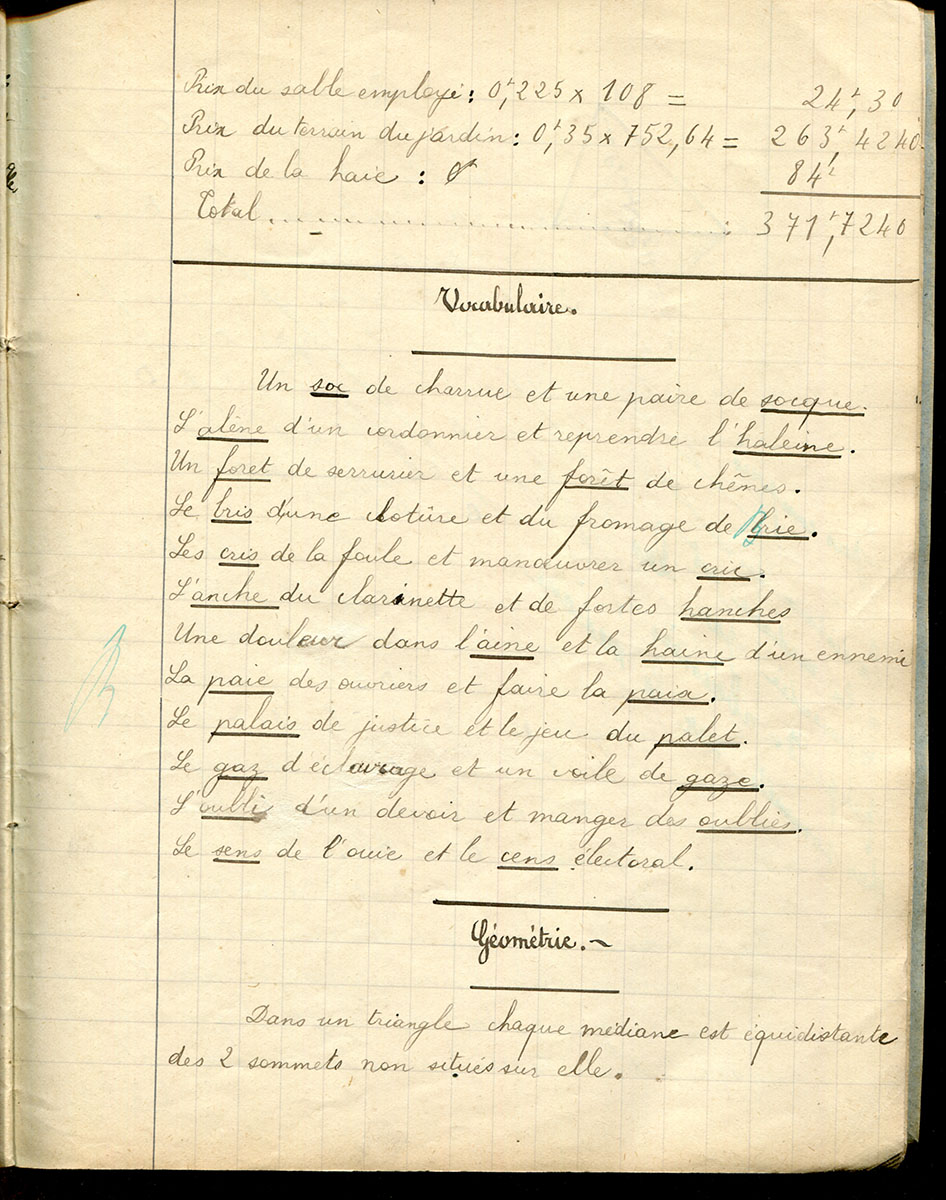 Prix du sable employé : 0ᶠ,225 x 108 = 24ᶠ,30
Prix du terrain du jardin : 0ᶠ,35 x 752,64 = 263ᶠ,4240
Prix de la haie : 84ᶠ
Total.................... : 371ᶠ,7240
Vocabulaire.
Un soc de charrue et une paire de socque.
L'alêne d'un cordonnier et reprendre l'haleine.
Un foret de serrurier et une forêt de chênes.
Le bris d'une clotûre et du fromage de Brie.
Les cris de la foule et manœuvrer un cric.
L'anche du clarinette et de fortes hanches
Une douleur dans l'aine et la haine d'un ennemi
La paie des ouvriers et faire la paix.
Le palais de justice et le jeu du palet.
Le gaz d'éclairage et un voile de gaze.
L'oubli d'un devoir et manger des oublies.
Le sens de l'ouie et le cens électoral.
Géométrie.~
Dans un triangle chaque médiane est équidistante
des 2 sommets non situés sur elle.